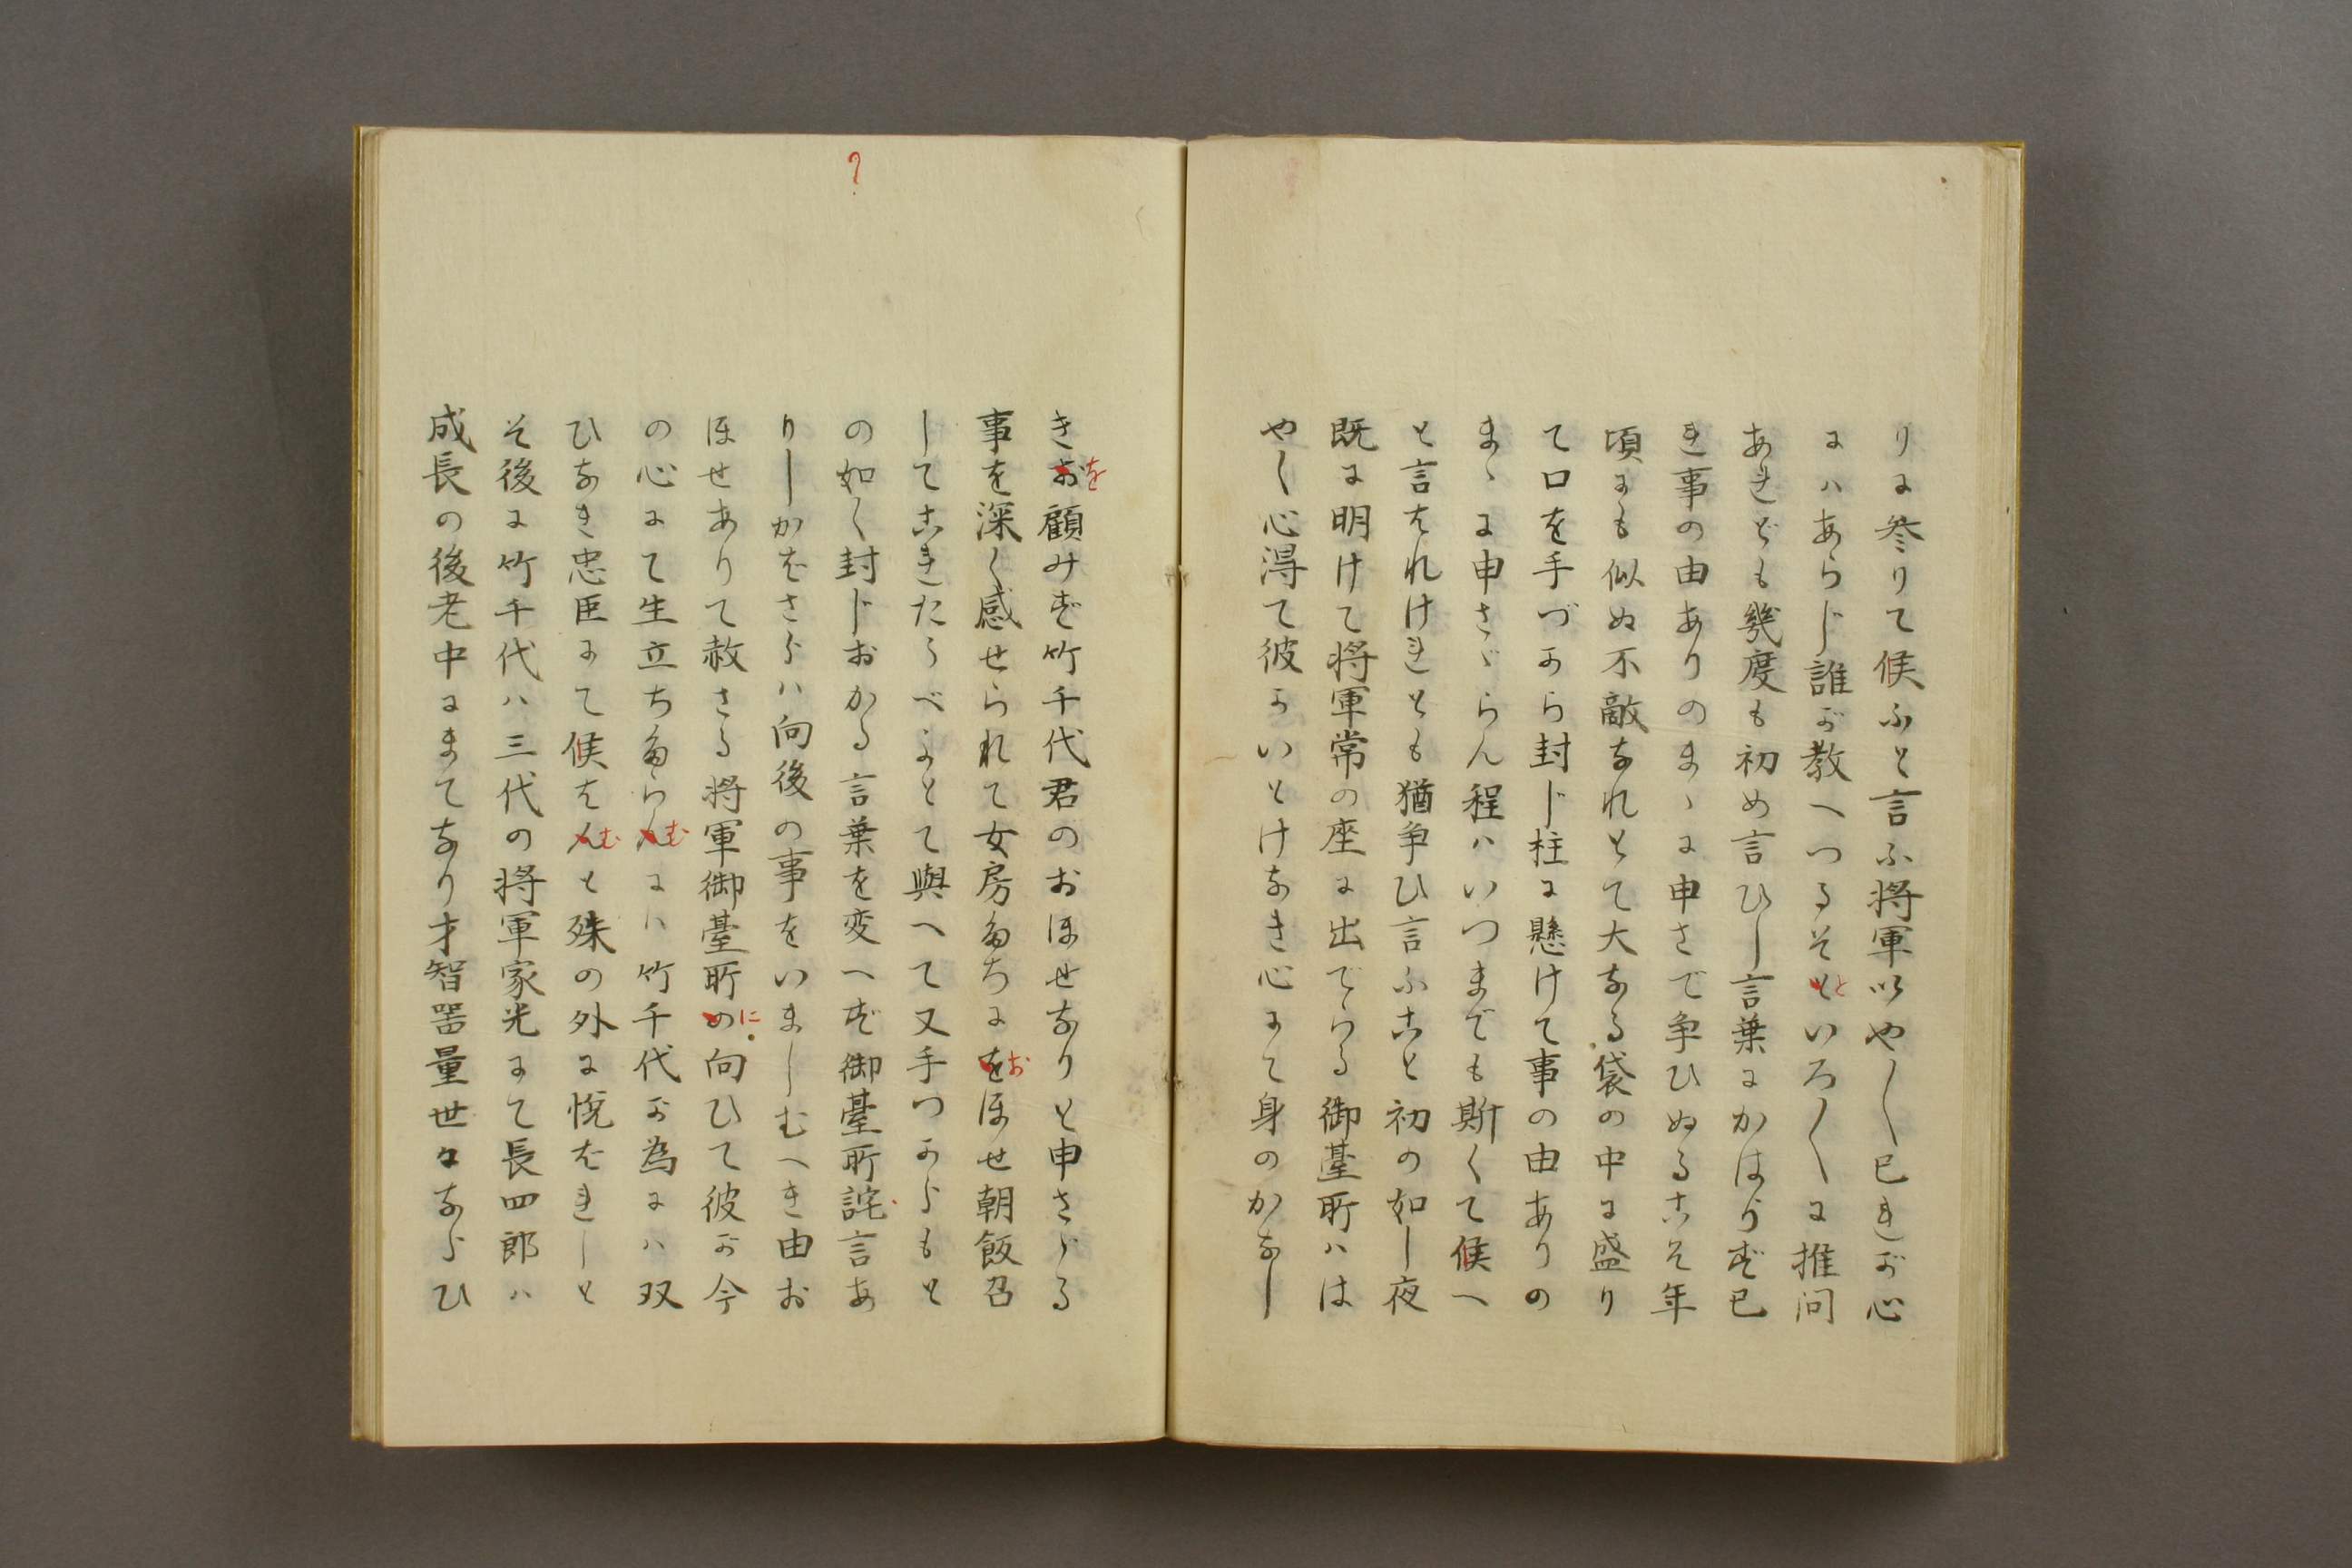 りに参りて候ふと言ふ将軍以やく己れが心
にハあらじ誰が教へつるそもといろ〳〵に推問
あれども幾度も初め言ひし言葉にかはらず己
れ事の由ありのまゝに申さで争ひぬるこそ年
頃にも似ぬ不敵なれとて大なる袋の中に盛り
て口を手づから封じ柱に懸けて事の由ありの
まゝに申さゞらん程ハいつまでも斯くて候へ
と言はれけれとも猶争ひ言ふこと初の如し夜
既に明けて将軍常の座に出でらる御臺所ハは
やく心得て彼かいとけなき心にて身のかなし
きおを顧みず竹千代君のおほせなりと申さゞる
事を深く感せられて女房たちにをおほせ朝飯召
してこれたうべよとて與へて又手つからもと
の如く封じおかる言葉を変へず御臺所詫言あ
りしかばさらハ向後の事をいましむへき由お
ほせありて赦さる将軍御臺所のに向ひて彼か今
の心にて生立ちたらんむにハ竹千代か為にハ双
ひなき忠臣にて候はんむと殊の外に悦はれしと
そ後に竹千代ハ三代の将軍家光にて長四郎ハ
成長の後老中にまてなり才智器量世にならひ
?